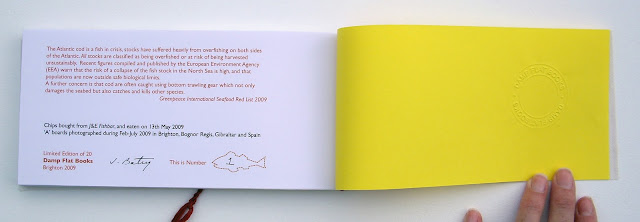 The Atlantic cod is a fish in crisis, stocks have suffered heavily from overfishing on both sides
of the Atlantic. All stocks are classified as being overfished or at risk of being harvested
unsustainably. Recent figures compiled and published by the European Environment Agency
(EEA) warn that the risk of a collapse of the fish stock in the North Sea is high, and that
populations are now outside safe biological limits.
A further concern is that cod are often caught using bottom trawling gear which not only
damages the seabed but also catches and kills other species.
Greenpeace International Seafood Red List 2009
Chips bought from J&E Fishbar, and eaten on 13th May 2009
'A' boards photographed during Feb-July 2009 in Brighton, Bognor Regis, Gibraltar and Spain
Limited Edition of 20
Damp Flat Books
Brighton 2009
This is Number 1